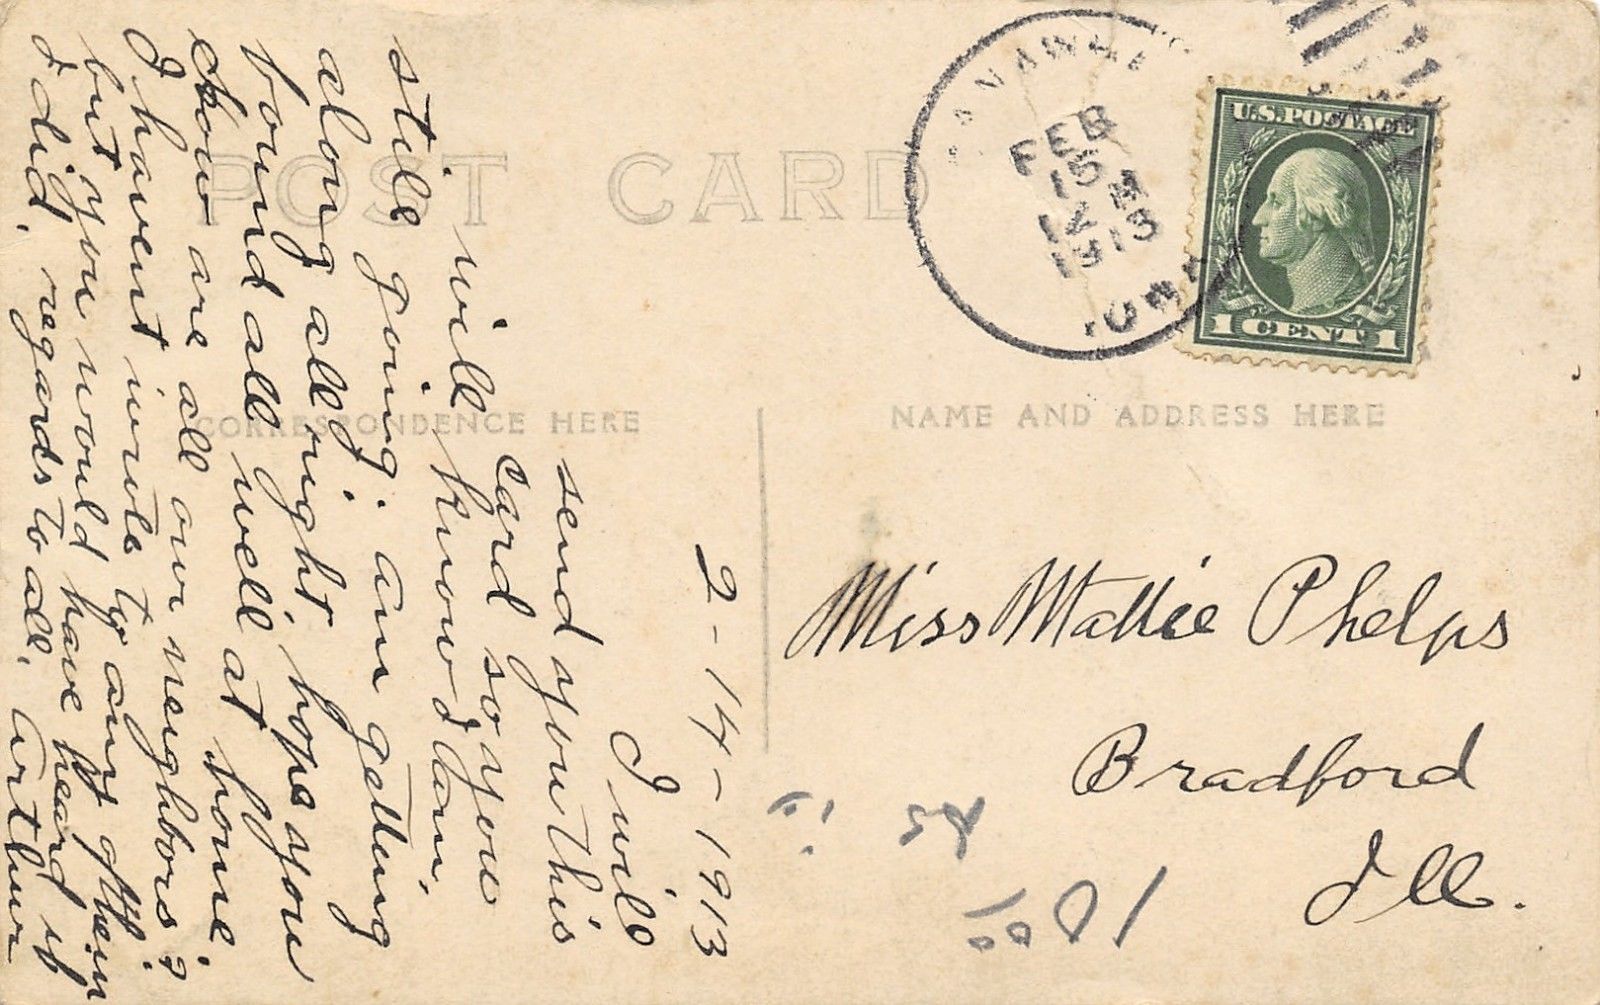 POST CARD
CORRESPONDENCE HERE
NAME AND ADDRESS HERE
FEB
15
12 M
1913
IOWA
U.S. POSTAGE
1 CENT 1
2-14-1913
I will
send you this
card so you
will know I am
still going. am getting
along all right. hope you
found all well at home.
How are all our neighbors?
I havent wrote to any of them
but you would have heard if
I did. regards to all. Arthur
Miss Mattie Phelps
Bradford
Ill.